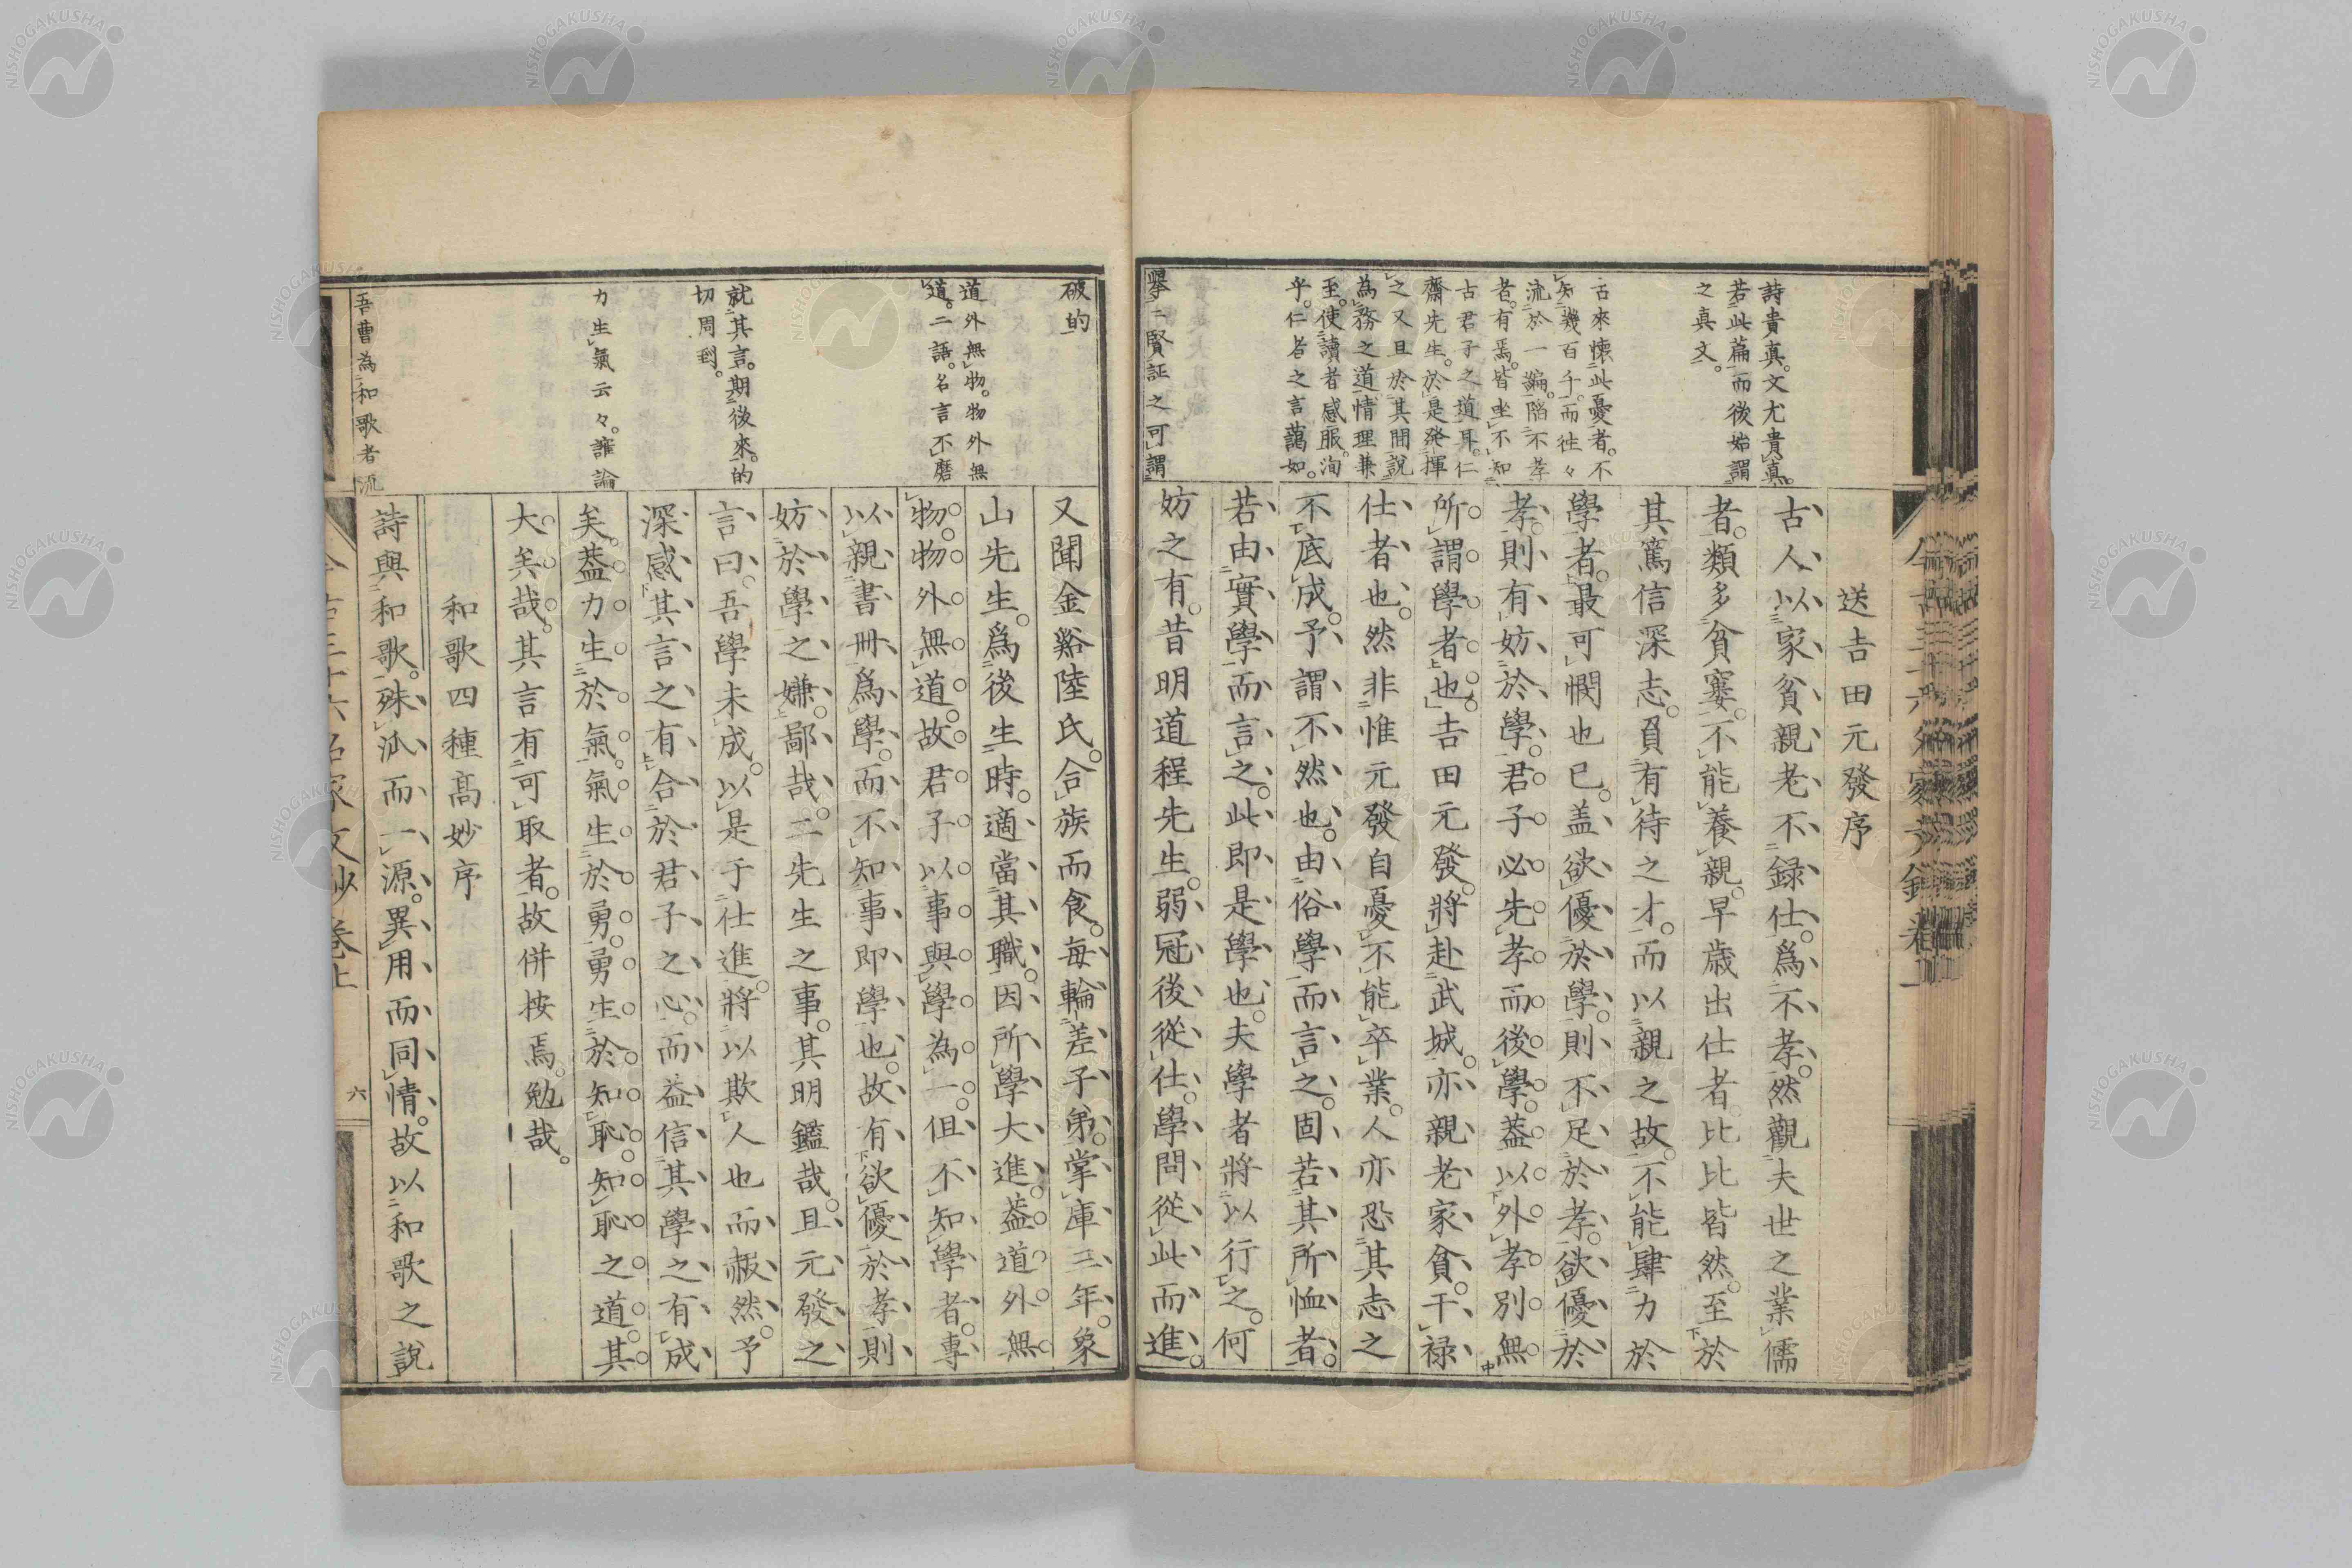 送吉田元發序
古人以家貧親老不録仕。爲不孝。然觀夫世之業儒
者。類多貧窶。不能養親。早歳出仕者。比比皆然。至於
其篤信深志。負有待之才。而以親之故。不能肆力於
學者。最可憫也已。盖欲優於學。則不足於孝。欲優於
孝。則有妨於學。君子必先孝而後學。葢以外孝別無
所謂學者也。吉田元發。將赴武城。亦親老家貧。干禄
仕者也。然非惟元發自憂不能卒業。人亦恐其志之
不底成。予謂不然也。由俗學而言之。固若其所恤者。
若由實學而言之。此即是學也。夫學者將以行之。何
妨之有。昔明道程先生。弱冠後從仕。學問從此而進。
詩貴真。文尤貴真。
若此篇而後始謂
之真文。
古來懐此憂者。不
知幾百千。而往々
流於一編。陷不孝
者。有焉。皆坐不知
古君子之道耳。仁
齋先生。於是発揮
之又且於其間說
為務之道情理兼
至。使讀者感服。洵
乎。仁者之言藹如。
擧二賢証之可謂
破的
道外無物。物外無
道。二語。名言不磨
就其言。期後來。的
切周到。
力生氣云々。誰論
吾曹為和歌者流
又聞金谿陸氏。合族而食。毎輪差子弟。掌庫三年。象
山先生。爲後生時。適當其職。因所學大進。葢道外無
物。物外無道。故君子以事與學為一。但不知學者。專
以親書冊爲學。而不知事即學也。故有欲優於孝則
妨於學之嫌。鄙哉。二先生之事。其明鑑哉。且元發之
言曰。吾學未成。以是于仕進。將以欺人也而赧然。予
深感其言之有合於君子之心。而益信其學之有成
矣。葢力生於氣。氣生於勇。勇生於知恥。知恥之道。其
大矣哉。其言有可取者。故併按焉。勉哉。
和歌四種高妙序
詩與和歌。殊派而一源。異用而同情。故以和歌之說
六